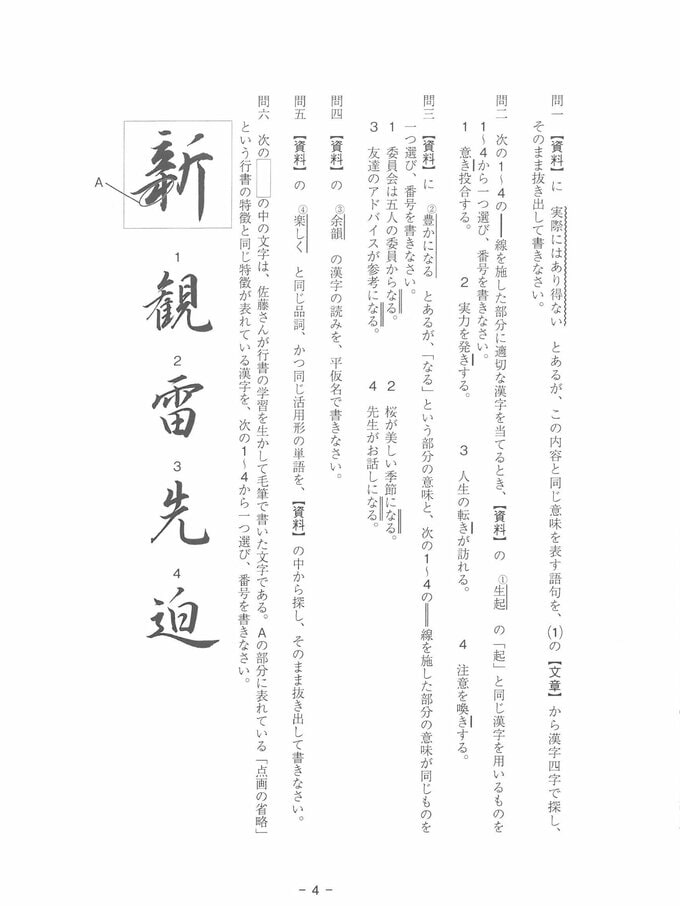 問一 【資料】に 実際にはあり得ない とあるが、この内容と同じ意味を表す語句を、(1)の【文章】から漢字四字で探し、
そのまま抜き出して書きなさい。
問二 次の1～4の――線を施した部分に適切な漢字を当てるとき、【資料】の ①生起 の「起」と同じ漢字を用いるものを
1～4から一つ選び、番号を書きなさい。
1 意き投合する。 2 実力を発きする。 3 人生の転きが訪れる。 4 注意を喚きする。
問三 【資料】に ②豊かになる とあるが、「なる」という部分の意味と、次の1～4の══線を施した部分の意味が同じものを
一つ選び、番号を書きなさい。
1 委員会は五人の委員からなる。 2 桜が美しい季節になる。
3 友達のアドバイスが参考になる。 4 先生がお話しになる。
問四 【資料】の ③余韻 の漢字の読みを、平仮名で書きなさい。
問五 【資料】の ④楽しく と同じ品詞、かつ同じ活用形の単語を、【資料】の中から探し、そのまま抜き出して書きなさい。
問六 次の の中の文字は、佐藤さんが行書の学習を生かして毛筆で書いた文字である。Aの部分に表れている「点画の省略」
という行書の特徴と同じ特徴が表れている漢字を、次の1～4から一つ選び、番号を書きなさい。
新
A
1 観
2 雷
3 先
4 迫
- 4 -